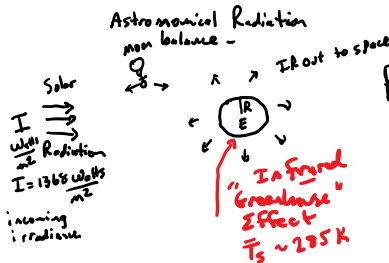 Astronomical Radiation
moon balance -
Solar
IR out to space
I
Watts
m²
Radiation
R
E
I = 1368 Watts
m²
incoming
irradiance
Infrared
"Greenhouse"
Effect
T̄s ~ 285 K